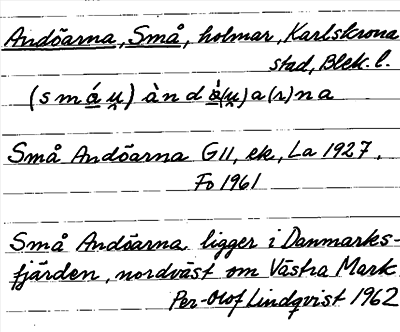 Andöarna, Små, holmar, Karlskrona
stad, Blek. l.
(smǻu̯) ànd
Små Andöarna GII, ek, La 1927.
Fo 1961
Små Andöarna ligger i Danmarks-
fjärden, nordväst om Västra Mark
Per-Olof Lindqvist 1962